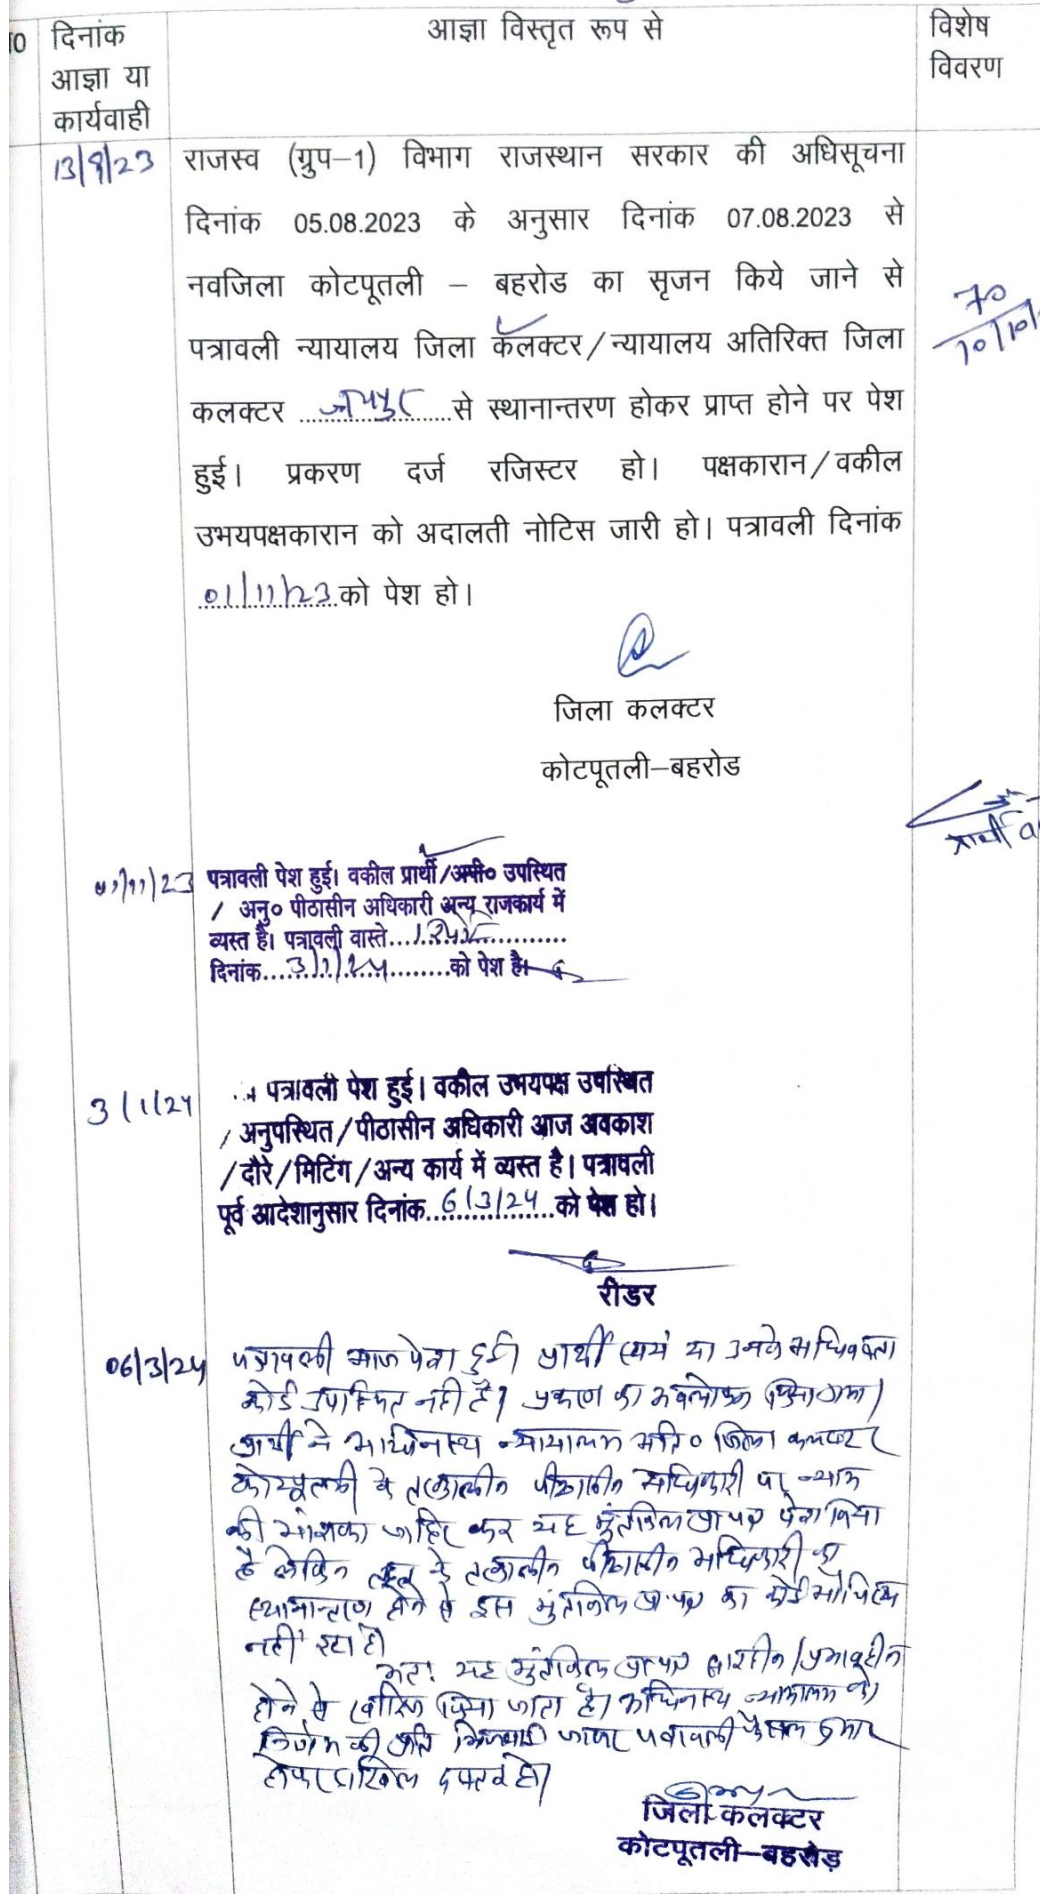 दिनांक
आज्ञा या
कार्यवाही
आज्ञा विस्तृत रूप से
विशेष
विवरण
13/9/23
राजस्व (ग्रुप–1) विभाग राजस्थान सरकार की अधिसूचना
दिनांक 05.08.2023 के अनुसार दिनांक 07.08.2023 से
नवजिला कोटपूतली – बहरोड का सृजन किये जाने से
पत्रावली न्यायालय जिला कॅलक्टर/न्यायालय अतिरिक्त जिला
कलक्टर ...जयपुर... से स्थानान्तरण होकर प्राप्त होने पर पेश
हुई। प्रकरण दर्ज रजिस्टर हो। पक्षकारान/वकील
उभयपक्षकारान को अदालती नोटिस जारी हो। पत्रावली दिनांक
01/11/23 को पेश हो।
70
10/10/
जिला कलक्टर
कोटपूतली–बहरोड
प्रार्थी
01/11/23
पत्रावली पेश हुई। वकील प्रार्थी/अपी० उपस्थित
/ अनु० पीठासीन अधिकारी अन्य राजकार्य में
व्यस्त है। पत्रावली वास्ते
दिनांक...3/1/24...को पेश है।
3/1/24
पत्रावली पेश हुई। वकील उभयपक्ष उपस्थित
/अनुपस्थित/पीठासीन अधिकारी आज अवकाश
/दौरे/मिटिंग/अन्य कार्य में व्यस्त है। पत्रावली
पूर्व आदेशानुसार दिनांक..6/3/24..को पेश हो।
रीडर
06/3/24
पत्रावली आज पेश हुई। प्रार्थी स्वयं या उनके अधिवक्ता
कोई उपस्थित नहीं है। प्रकरण का अवलोकन किया गया।
प्रार्थी ने अधिनस्थ न्यायालय अति० जिला कलक्टर
कोटपूतली के तत्कालीन पीठासीन अधिकारी पर न्याय
की आंशका जाहिर कर यह मुंतकिल प्रा.पत्र पेश किया
है लेकिन के तत्कालीन पीठासीन अधिकारी का
स्थानान्तरण होने से इस मुंतकिल प्रा.पत्र का कोई औचित्य
नहीं रहा है।
अतः यह मुंतकिल प्रा.पत्र सारहीन/प्रभावहीन
होने से खारिज किया जाता है। अधिनस्थ न्यायालय को
निर्णय की प्रति भिजवाई जाकर पत्रावली फैसल शुमार
होकर दाखिल दफ्तर हो।
जिला कलक्टर
कोटपूतली–बहरोड़